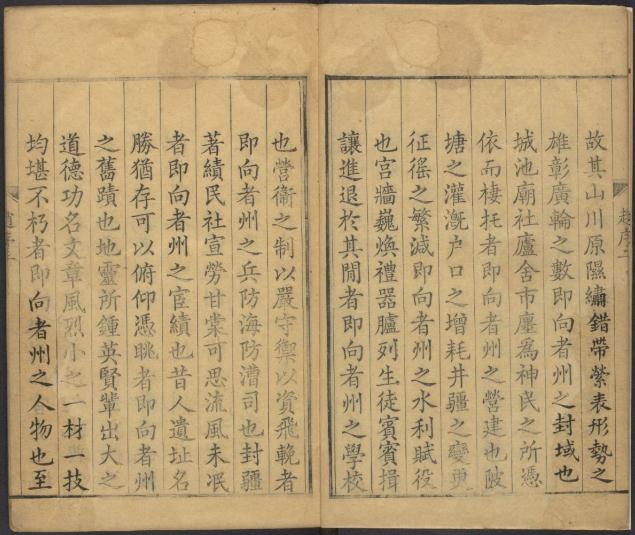 故其山川原隰繡錯帶縈表形勢之
雄彰廣輪之數即向者州之封域也
城池廟社廬舍市廛為神民之所憑
依而棲托者即向者州之營建也陂
塘之灌漑户口之增耗井疆之變更
征徭之繁減即向者州之水利賦役
也宮牆巍煥禮器臚列生徒賓賓揖
讓進退於其間者即向者州之學校
也營衞之制以嚴守禦以資飛輓者
即向者州之兵防海防漕司也封疆
著績民社宣勞甘棠可思流風未泯
者即向者州之宦績也昔人遺址名
勝猶存可以俯仰憑眺者即向者州
之舊蹟也地靈所鍾英賢輩出大之
道德功名文章風烈小之一材一技
均堪不朽者即向者州之人物也至